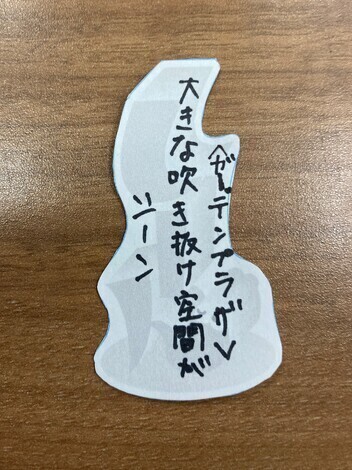 〈ガーデンプラザ〉
大きな吹き抜け空間が
シーン